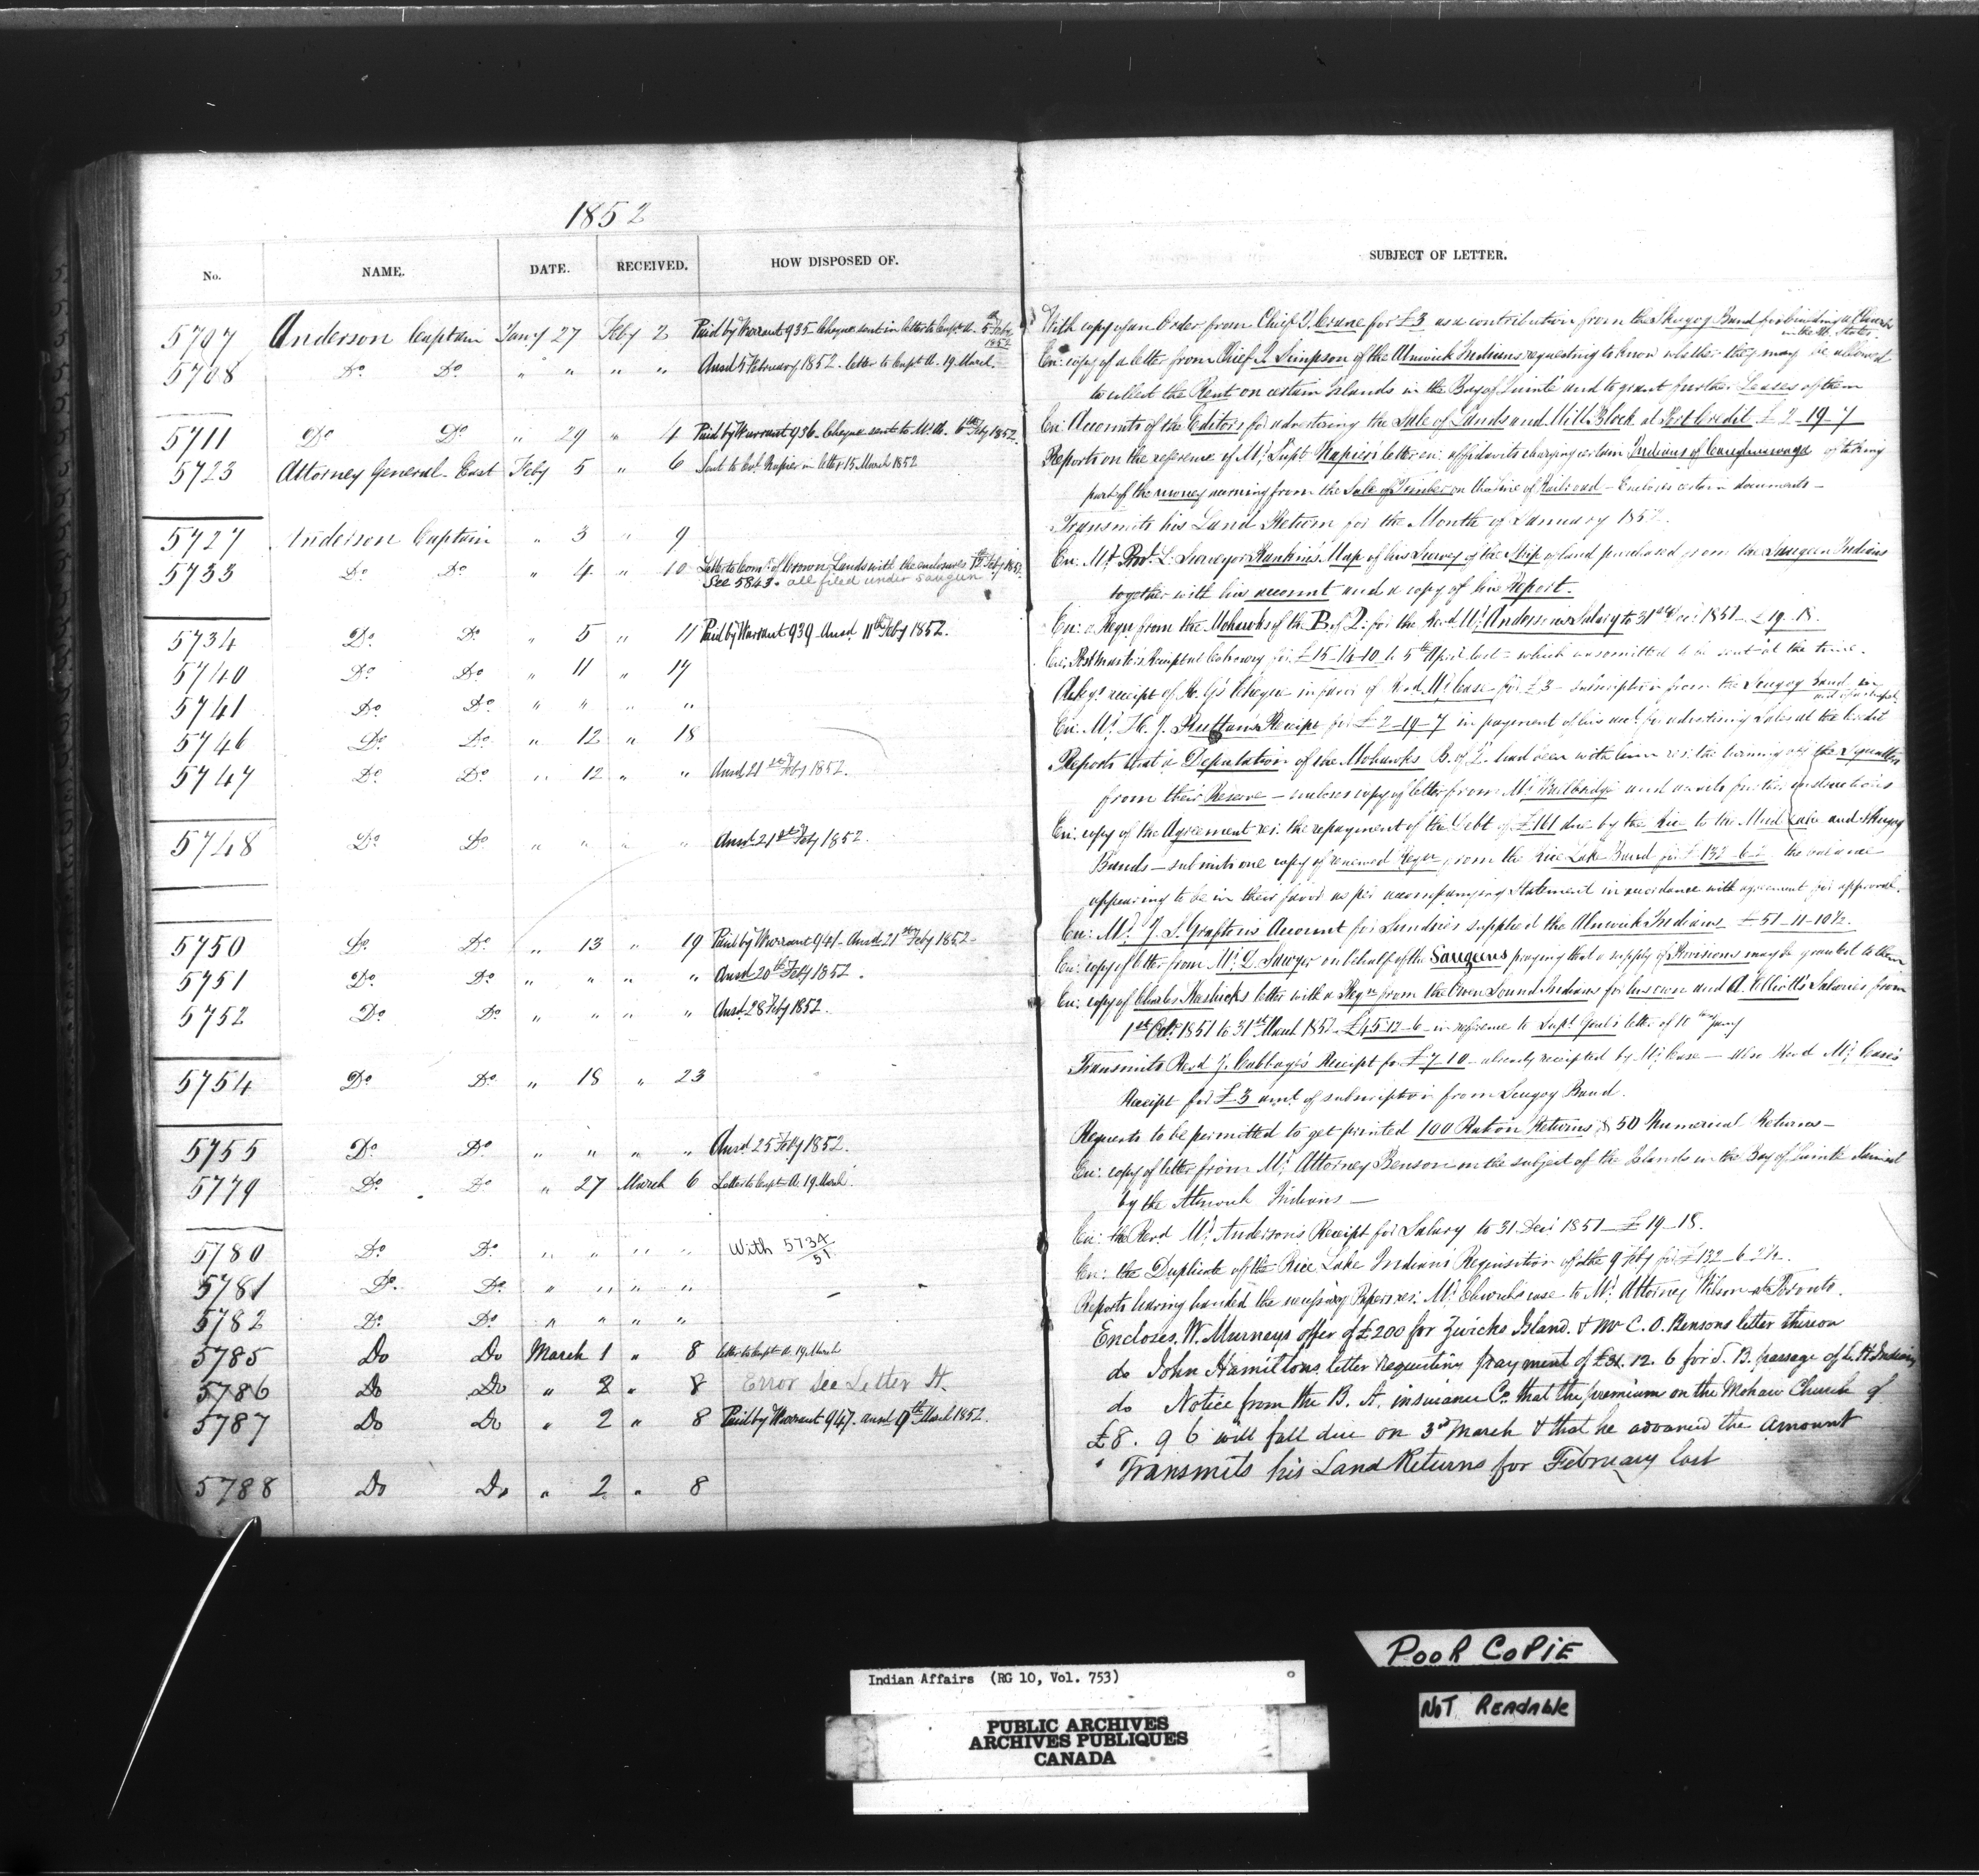 1852
No. NAME. DATE. RECEIVED. HOW DISPOSED OF. SUBJECT OF LETTER.
5707 Anderson Captain Jany 27 Feby 2 Paid by Warrant 935 Cheque sent in letter to Capt. A. 5th Feby 1852 With copy of an Order from Chief J. Crane for £3 as a contribution from the Skugog Band for building a Church
in the U. States
5708 Do. Do. " " " " Ansd. 5 February 1852. Letter to Capt. A. 19 March. En: copy of a letter from Chief J. Simpson of the Alnwick Indians requesting to know whether they may be allowed
to collect the Rent on certain Islands in the Bay of Quinté and to grant further Leases of them
5711 Do. Do. " 29 " 4 Paid by Warrant 936. Cheque sent to Mr. A. 6th Feby 1852. En: Accounts of the Editors for advertising the Sale of Lands and Mill Block at Port Credit £2-19-7
5723 Attorney General East Feby 5 " 6 Sent to Col. Napier in letter 15 March 1852 Reports on the reference of Mr. Supt. Napier's letter en: affidavits charging certain Indians of Caughnawaga of taking
part of the money coming from the Sale of Timber on the Line of Railroad - Encloses certain documents -
5727 Anderson Captain " 3 " 9 Transmits his Land Return for the Month of January 1852.
5733 Do. Do. " 4 " 10 Letter to Comr. of Crown Lands with the enclosures Feby 1852. En: Mr. Prov. L. Surveyor Rankin's Map of his Survey of the Strip of land purchased from the Saugeen Indians
See 5843. all filed under Saugeen together with his account and a copy of his Report.
5734 Do. Do. " 5 " 11 Paid by Warrant 939 Ansd. 11th Feby 1852. En: a Requ from the Mohawks of the B of Q. for the Revd. Mr. Anderson's Salary to 31 Dec: 1851 - £19-18.
5740 Do. Do. " 11 " 17 En: Postmaster's Receipt at Cobourg for £15-14-10 to 5th April last - which was omitted to be sent at the time.
5741 Do. Do. " " " " Ackgs. receipt of Cheque in favor of Revd. Mr. Case for £3 - subscription from the Scugog Band
5746 Do. Do. " 12 " 18 En: Mr. H. J. Ruttan's Receipt for £2-19-7 in payment of his acct. for advertising Sales at the Credit
5747 Do. Do. " 12 " " Ansd. 21st Feby 1852. Reports that a Deputation of the Mohawks B. of Q. had been with him the turning off the Squatters
from their Reserve - encloses copy of letter from Mr. Wallbridge and awaits further instructions
5748 Do. Do. " " " " Ansd. 21st Feby 1852. En: copy of the Agreement res: the repayment of the Debt of £161 due by the Rice to the Mud Lake and Skugog
Bands - submits one copy of renewed Requ from the Rice Lake Band for £132-6- the balance
appearing to be in their favor as per accompanying Statement in accordance with agreement for approval.
5750 Do. Do. " 13 " 19 Paid by Warrant 941 - Ansd 21st Feby 1852 - En: Mr. J. S. Grafton's Account for Sundries supplied the Alnwick Indians £51-11-10½.
5751 Do. Do. " " " " Ansd 20th Feby 1852. En: copy of letter from Mr. D. Sawyer on behalf of the Saugeens praying that a supply of Provisions may be granted to them
5752 Do. Do. " " " " Ansd. 28 Feby 1852. En: copy of Charles Keeshick's letter with a Requ from the Owen Sound Indians for his own and A. Elliott's Salaries from
1st Octr. 1851 to 31st March 1852 - £45-12-6 in reference to Supt. Genl's letter of 10 Jany
5754 Do. Do. " 18 " 23 Transmits Revd J. Cabbage's Receipt for £7-10 - already receipted by Mr. Case - Also Revd Mr. Case's
Receipt for £3 amt. of subscription from Scugog Band.
5755 Do. Do. " " " " Ansd. 25 Feby 1852. Requests to be permitted to get printed 100 Ration Returns & 50 Numerical Returns -
5779 Do. Do. " 27 March 6 Letter to Capt. A. 19 March. En: copy of letter from Mr. Attorney Benson on the subject of the Islands in the Bay of Quinté claimed
by the Alnwick Indians -
5780 Do. Do. " " " " With 5734/51 En: the Revd Mr. Anderson's Receipt for Salary to 31 Dec: 1851 - £19-18.
5781 Do. Do. " " " " En: the Duplicate of the Rice Lake Indians Requisition of the 9 Feby for £132-6-2½.
5782 Do. Do. " " " " Reports having handed the necessary Papers res: Mr. case to Mr. Attorney Wilson at Toronto.
5785 Do Do March 1 " 8 letter to Capt. A. 19 March Encloses W. Murneys offer of £200 for Zwicks Island. & Mr C. O. Bensons letter thereon
5786 Do Do " 2 " 8 Error See Letter H. do John Hamiltons letter requesting payment of £31. 12. 6 for S. B. passage of Indians
5787 Do Do " 2 " 8 Paid by Warrant 947. ansd 9th March 1852. do Notice from the B. A. insurance Co. that the premium on the Mohawk Church of
£8. 9 6 will fall due on 3rd March & that he advanced the amount
5788 Do Do " 2 " 8 " Transmits his Land Returns for February last
POOR COPIE
NOT READABLE
Indian Affairs (RG 10, Vol. 753)
PUBLIC ARCHIVES
ARCHIVES PUBLIQUES
CANADA